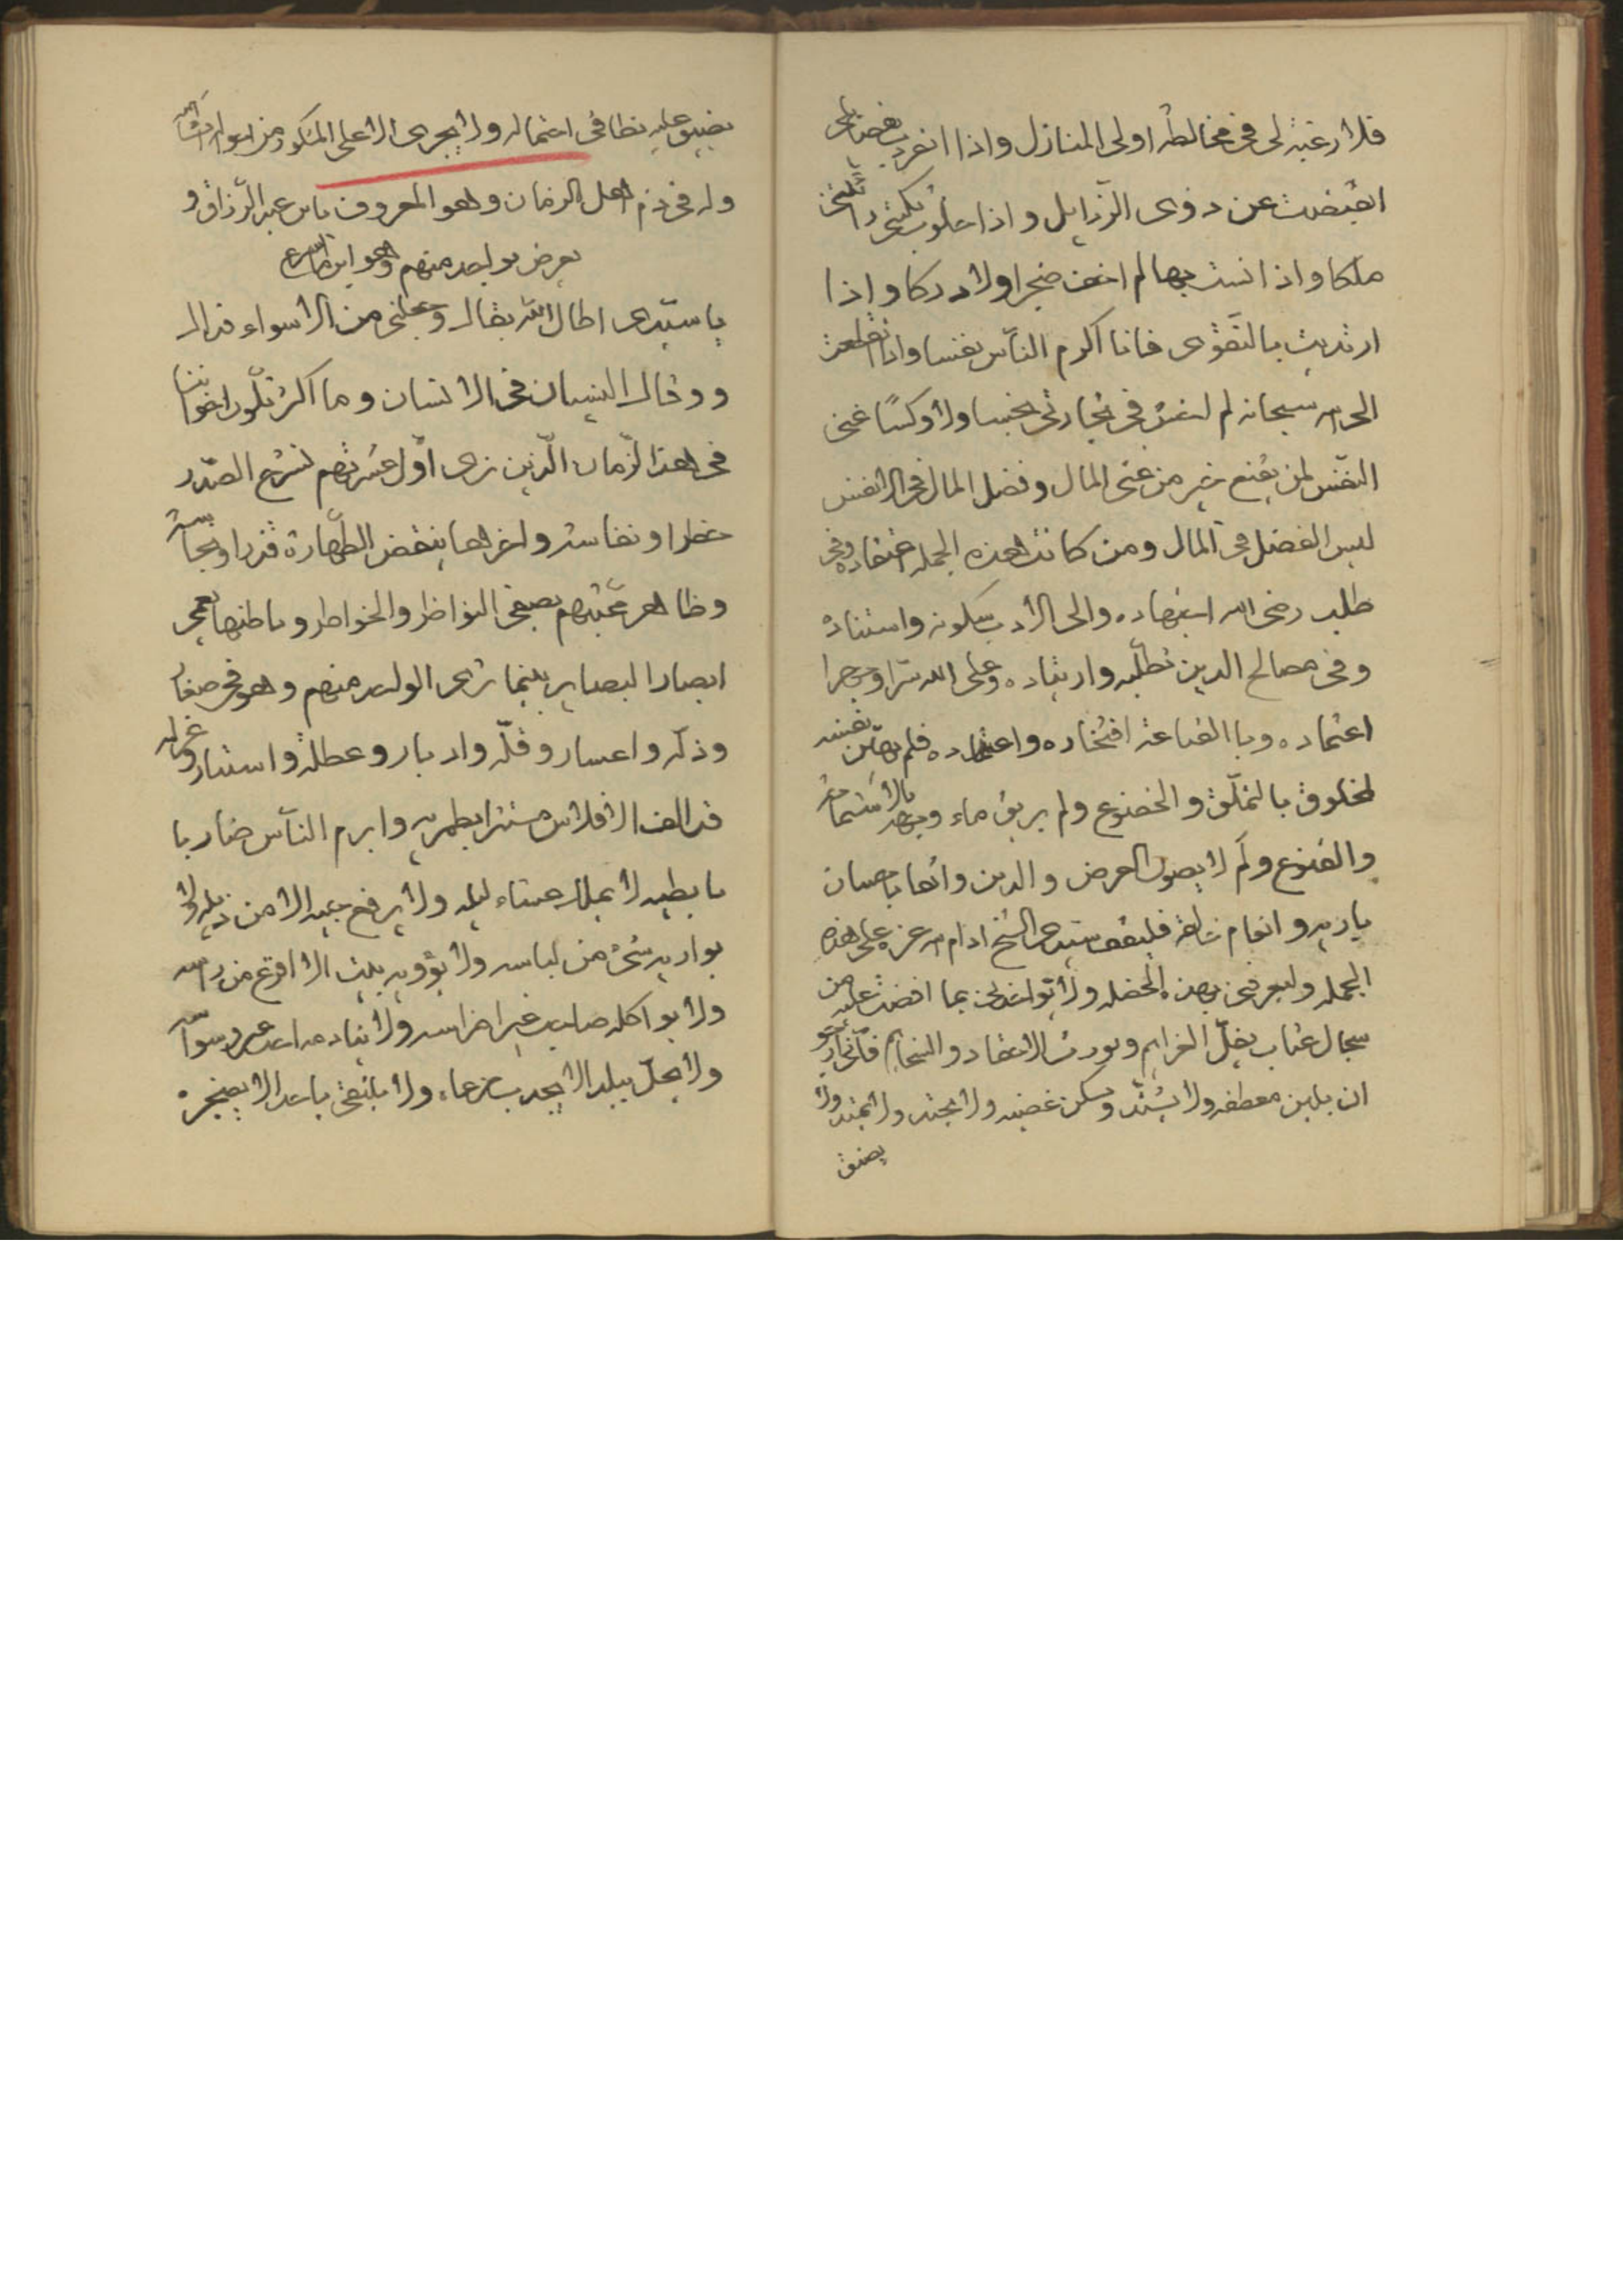 فلا رغبة لى فى مخالطة اولى المنازل واذا انفردت بفضائلى
انقبضت عن ذوى الرّذايل واذا خلوت بكتبى
ملكا واذا انست بها لم اخف ضجرا ولا دركا واذا
ارتديت بالتّقوى فانا اكرم النّاس نفسا واذا انقطعت
الى الله سبحانه لم فى تجارتى بخسا ولا وكسًا غنى
النّفس لمن يقنع خير من غنى المال وفضل المال فى الانفس
ليس الفضل فى المال ومن كانت هذه الجملة اعتقاده وفى
طلب رضى الله اجتهاده والى الادب سكونه واستناده
وفى مصالح الدين تطلّبه وارتياده وعلى الله سرّا وجهرا
اعتماده وبا القناعة افتخاره واعتداده فلم يهن نفسه
لمخلوق بالتملّق والخضوع ولم يرق ماء وجهه بالاستماحة
والقنوع ولم لا يصون العرض والدين وانها
بارية وانعام فليقف سيدى الشيخ ادام الله عزه على هذه
الجملة وليعرفنى بهذه الخصلة ولا تواخذنى بما افضت عليه من
سجال عتاب يفلّ العزايم ويورث الاحقاد والسخايم فانّى ارجو
ان يلين معطفه ولا يشتدّ ويسكن غضبه ولا يحتد ولا يمتد ولا
يضيق
يضيق عليه نطاق احتماله ولا يجرى الا على المشكور من احواله ان شاء الله
وله فى ذم اهل الزمان وهو المعروف بابن عبد الرّزاق و
يعرض بواحد منهم وهو ابن
يا سيّدى اطال الله بقاك وجعلنى من الاسواء فداك
ووقاك النسيان فى الانسان وما اكثر تلّون اخواننا
فى هذا الزّمان الّذين نرى اوّل عشرتهم لشرح الصّدر
خطرا ونفاسة واخرها ينقض الطّهارة قذرا ونجاسة
وظاهر محبّتهم يصفى النواظر والخواطر وباطنها يعمى
ابصار البصاير بينما ترى الواحد منهم وهو فى صغار
وذلّه واعسار وقلّه وادبار وعطلة واستتار وعزله
قد الف الافلاس مستترا بطمريه وابرم النّاس ضاربا
بابطيه لا يملك عشاء ليلة ولا يرفع جيبه الا من ذيله ولا
يواريه شئ من لباسه ولا يؤويه بيت الا اقرع من راسه
ولا يواكله صاحب غير اضراسه ولا ينادمه احد غير وسواسه
ولا يحلّ ببلد الا يجدب مرعاه ولا يلتقى باحد الا يضجره